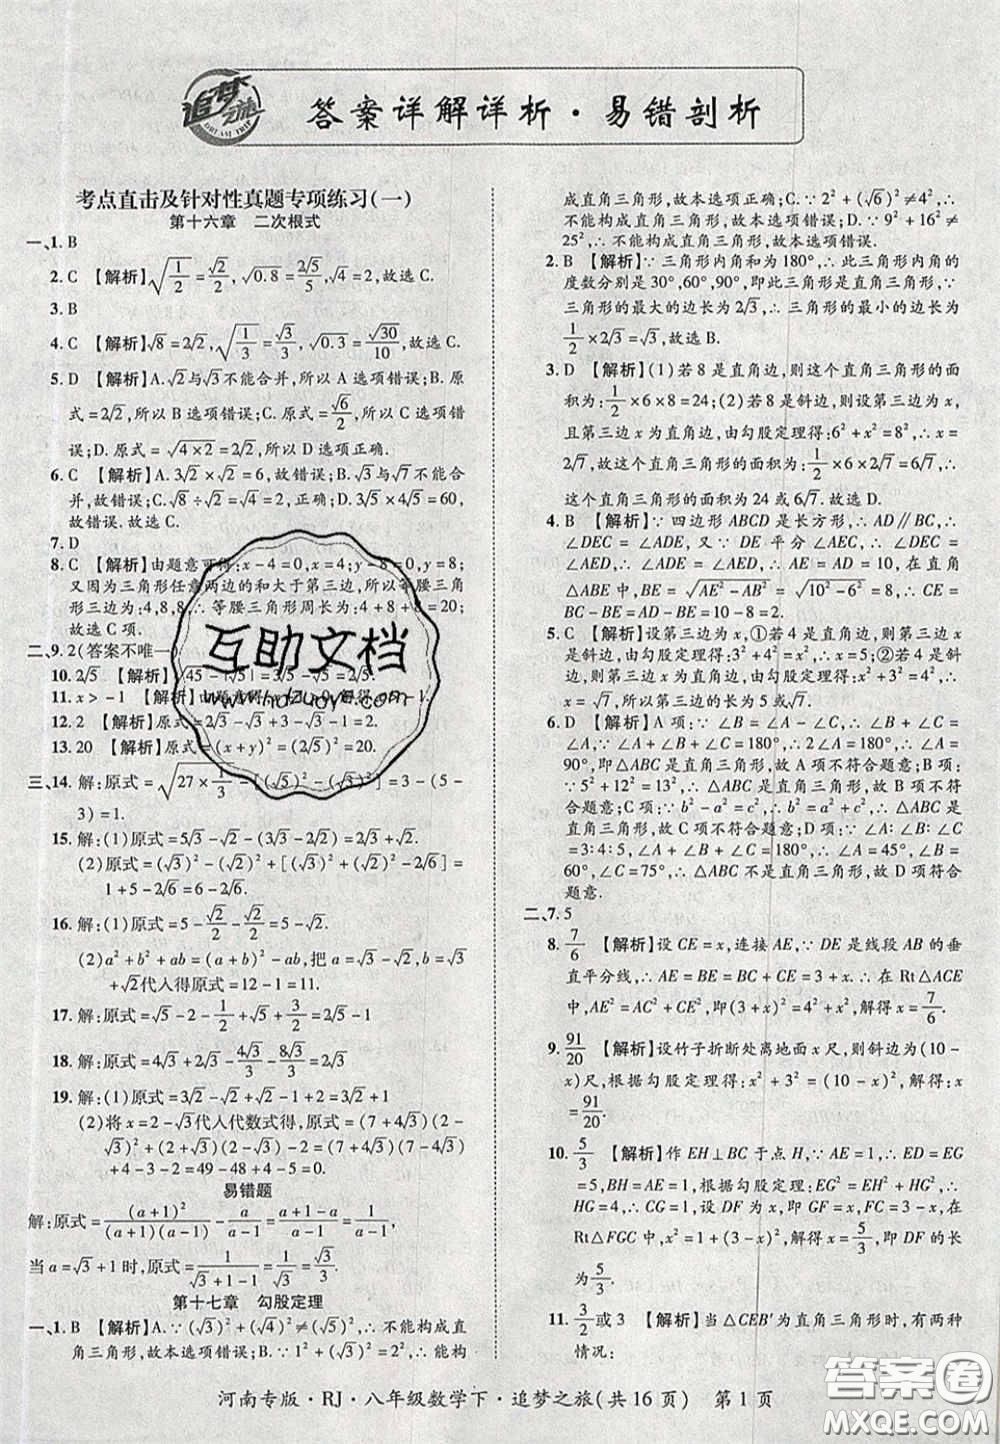 追梦之旅
DREAM TRIP
答案详解详析·易错剖析
考点直击及针对性真题专项练习(一)
第十六章 二次根式
一、1. B
2. C 【解析】√(1/2)=√2/2,√0.8=2√5/5,√4=2,故选C.
3. B
4. C 【解析】√8=2√2,√(1/3)=√3/3,√0.3=√30/10,故选C.
5. D 【解析】A.√2与√3不能合并,所以A选项错误;B.原
式=2√2,所以B选项错误;C.原式=√6/2,所以C选项错
误;D.原式=√(4×2)=2√2,所以D选项正确.
6. C 【解析】A.3√2×√2=6,故错误;B.√3与√7不能合
并,故错误;C.√8÷√2=√4=2,正确;D.3√5×4√5=60,
故错误.故选C.
7. D
8. C 【解析】由题意可得:x-4=0,x=4;y-8=0,y=8;
又因为三角形任意两边的和大于第三边,所以等腰三角
形三边为:4,8,8,∴等腰三角形周长为:4+8+8=20;
故选C项.
二、9. 2(答案不唯一)
10. 2√5 【解析】|√45-√5|=2√5.
11. x>-1 【解析】由题意得
12. 2 【解析】原式=2√3-√3+3-√3-1=2.
13. 20 【解析】原式=(x+y)²=(2√5)²=20.
三、14. 解:原式=√(27×1/3)-[(√5)²-(√3)²]=3-(5-
3)=1.
15. 解:(1)原式=5√3-√2-(3√3-2√2)=2√3+√2.
(2)原式=(√3)²-(√2)²+[(√3)²+(√2)²-2√6]=
1+5-2√6=6-2√6.
16. 解:(1)原式=5-√2/2-√2/2=5-√2.
(2)a²+b²+ab=(a+b)²-ab,把a=√3-√2,b=√3+
√2代入得原式=12-1=11.
17. 解:原式=√5-1/2+√5+1/2-1=2√5-1
18. 解:原式=4√3-2√3+4√3/3-8√3/3=2√3/3.
19. 解:(1)x²=(2-√3)²=7-4√3.
(2)将x=2-√3代入代数式得,原式=(7+4√3)(2-
√3)²+(2+√3)(2-√3)+√3=(7+4√3)(7-
4√3)+1+√3=49-48+1+√3=2+√3.
易错题
解:原式=(a+1)²/((a+1)(a-1))-a/(a-1)=(a+1-a)/(a-1)=1/(a-1),
当a=√3+1时,原式=1/(√3+1-1)=1/√3=√3/3.
第十七章 勾股定理
一、1. B 【解析】A.∵(√3)²+(√4)²≠(√5)²,∴不能构成直
角三角形,故本选项错误;B.∵1²+(√2)²=(√3)²,∴能构
成直角三角形,故本选项正确;C.∵2²+(√6)²≠4²,∴不
能构成直角三角形,故本选项错误;D.∵9²+16²≠
25²,∴不能构成直角三角形,故本选项错误.
2. B 【解析】∵三角形内角和为180°,∴此三角形内角的
度数分别是30°,60°,90°,即此三角形是直角三角形,∵
三角形的最大的边长为2√3,∴三角形的最小的边长为
1/2×2√3=√3,故选B.
3. D 【解析】(1)若8是直角边,则这个直角三角形的面
积为:1/2×6×8=24;(2)若8是斜边,则设第三边为x,
且第三边x为直角边,由勾股定理得:6²+x²=8²,∴x=
2√7,故这个直角三角形的面积为:1/2×6×2√7=6√7,
故这个直角三角形的面积为24或6√7.故选D.
4. B 【解析】∵四边形ABCD是长方形,∴AD∥BC,∴
∠DEC=∠ADE,又∵DE平分∠AEC,∴∠DEC=
∠AED,∴∠ADE=∠AED,∴AE=AD=10,在直角
△ABE中,BE=√(AE²-AB²)=√(10²-6²)=8,∴CE=
BC-BE=AD-BE=10-8=2.
5. C 【解析】设第三边为x,①若4是直角边,则第三边x
是斜边,由勾股定理得:3²+4²=x²,∴x=5;②若4是斜
边,则第三边x为直角边,由勾股定理得:3²+x²=4²,∴x
=√7,所以第三边的长为5或√7.
6. D 【解析】A项:∵∠B=∠A-∠C,∴∠B+∠C=
∠A,∵∠A+∠B+∠C=180°,∴2∠A=180°,∴∠A=
90°,∴△ABC是直角三角形,故A项不符合题意;B项:
∵5²+12²=13²,∴△ABC是直角三角形,故B项不符
合题意;C项:∵b²-a²=c²,∴b²=a²+c²,∴△ABC是直
角三角形,故C项不符合题意;D项:∵∠A:∠B:∠C
=3:4:5,∠A+∠B+∠C=180°,∴∠A=45°,∠B=
60°,∠C=75°,∴△ABC不是直角三角形,故D项符合
题意.
二、7. 5
8. 7/6 【解析】设CE=x,连接AE,∵DE是线段AB的垂
直平分线,∴AE=BE=BC+CE=3+x,∴在Rt△ACE
中,AE²=AC²+CE²,即(3+x)²=4²+x²,解得x=7/6.
9. 91/20 【解析】设竹子折断处离地面x尺,则斜边为(10-
x)尺,根据勾股定理得:x²+3²=(10-x)²,解得:x=
91/20.
10. 5/3 【解析】作EH⊥BC于点H,∵AE=1,∴ED=EG
=5,BH=AE=1,根据勾股定理得:EG²=EH²+HG²,∴
HG=4,GC=1,设DF=x,则GF=x,FC=3-x,在
Rt△FGC中,x²=1+(3-x)²,解得:x=5/3,即DF的长
为5/3.
11. 3/2或3 【解析】当△CEB'为直角三角形时,有两种
情况:
互助文档
www.hdzuoye.com
河南专版·RJ·八年级数学下·追梦之旅(共16页) 第1页
答案圈
MXQE.COM